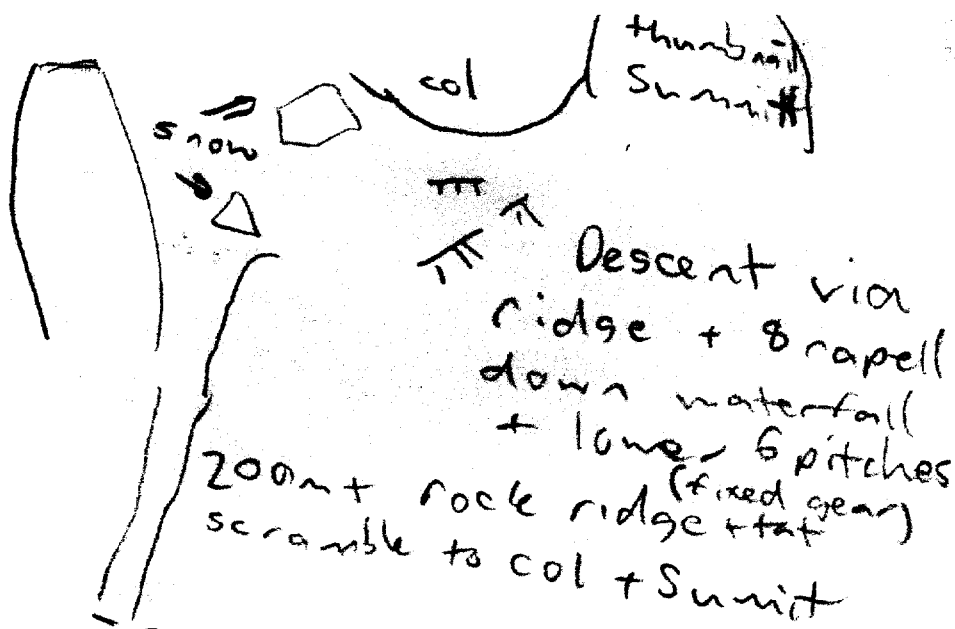 thumbnail
Summit
col
snow
Descent via
ridge + 8 rapell
down waterfall
+ lower 6 pitches
(fixed gear)
+ tat
200m+ rock ridge
scramble to col + Summit